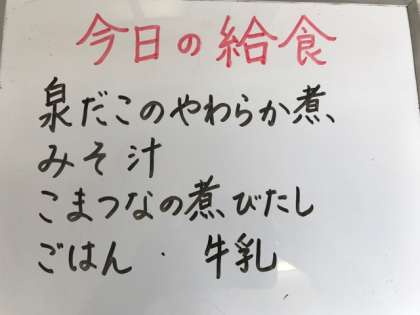 今日の給食
泉だこのやわらか煮、
みそ汁
こまつなの煮びたし
ごはん・牛乳